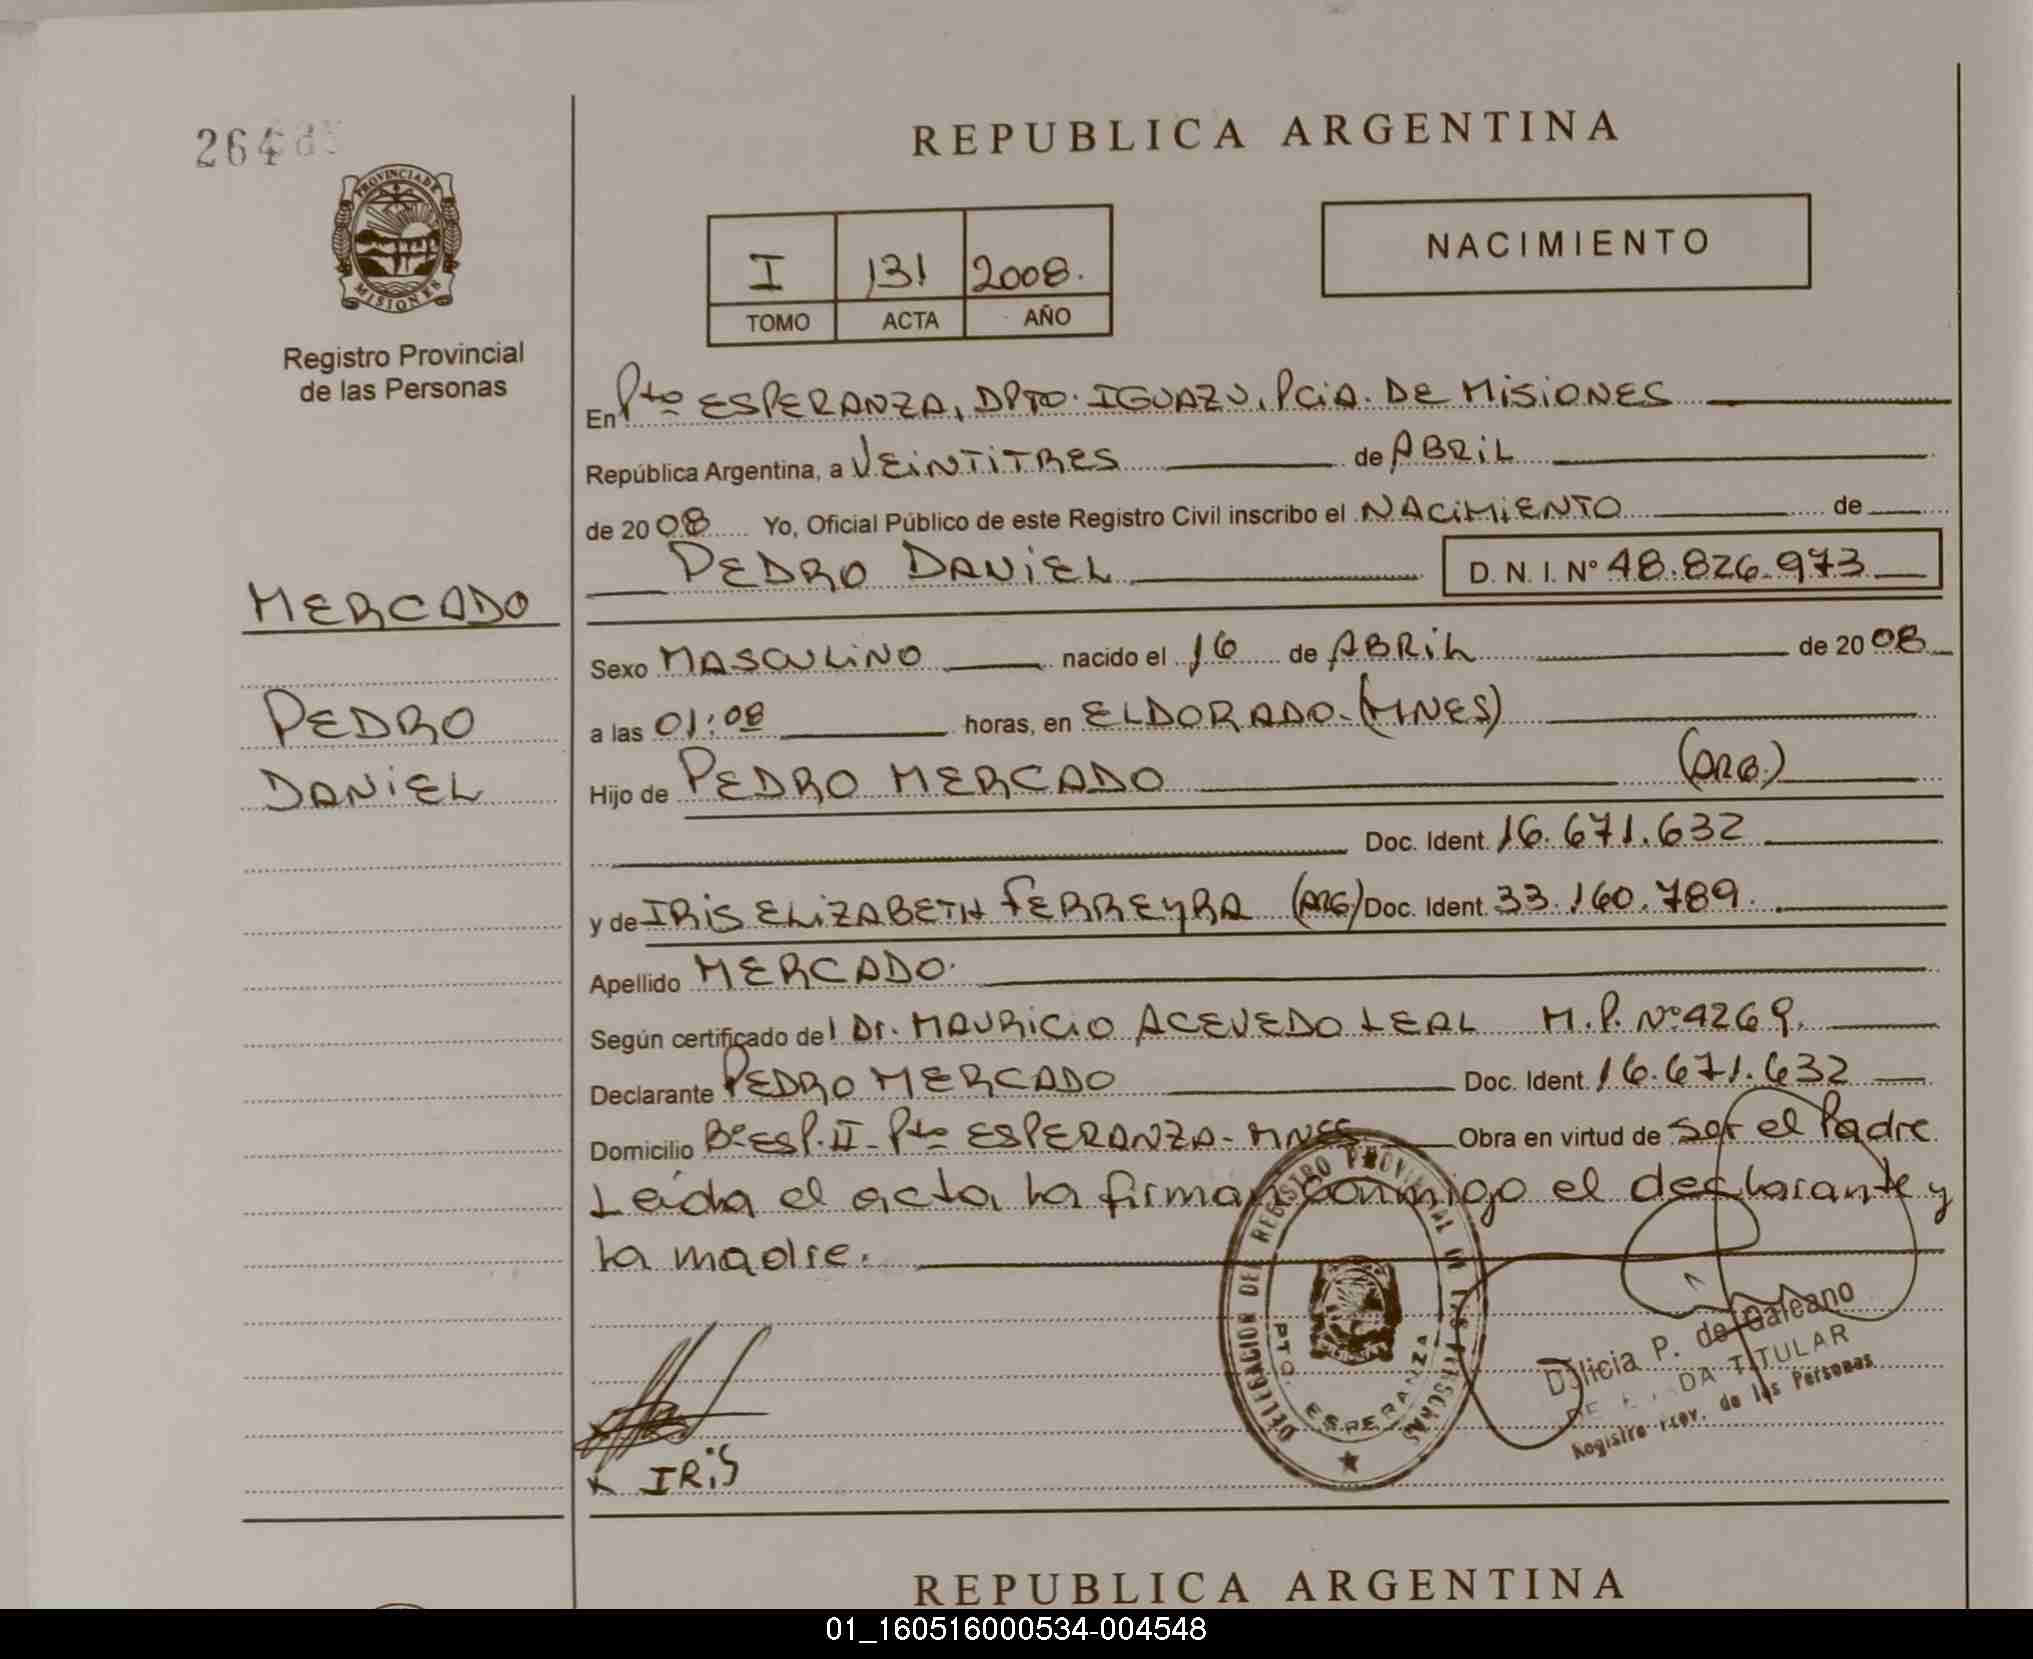 264
PROVINCIA DE
MISIONES
Registro Provincial
de las Personas
MERCADO
PEDRO
DANIEL
REPUBLICA ARGENTINA
I 131 2008.
TOMO ACTA AÑO
NACIMIENTO
En Pto ESPERANZA, DPTO. IGUAZU, PCiA. DE MiSiONES
República Argentina, a VEiNTiTRES de ABRiL
de 2008 Yo, Oficial Público de este Registro Civil inscribo el NACiMiENTO de
PEDRO DANiEL D. N. I. N° 48.826.973
Sexo MASCULiNO nacido el 16 de ABRiL de 2008
a las 01:08 horas, en ELDORADO-(MNES)
Hijo de PEDRO MERCADO (ARG.)
Doc. Ident. 16.671.632
y de IRiS ELiZABETH FERREYRA (ARG) Doc. Ident. 33.160.789.
Apellido MERCADO.
Según certificado del Dr. MAURiCiO ACEVEDO LEAL M.P. N°4269.
Declarante PEDRO MERCADO Doc. Ident. 16.671.632
Domicilio B° ESP. II - Pto ESPERANZA - MNES Obra en virtud de ser el Padre
Leída el acta la firman conmigo el declarante y
la madre.
IRiS
DELEGACION DEL REGISTRO PROVINCIAL DE LAS PERSONAS
PTO. ESPERANZA
Delicia P. de Galeano
TITULAR
Registro Prov. de las Personas
REPUBLICA ARGENTINA
01_160516000534-004548